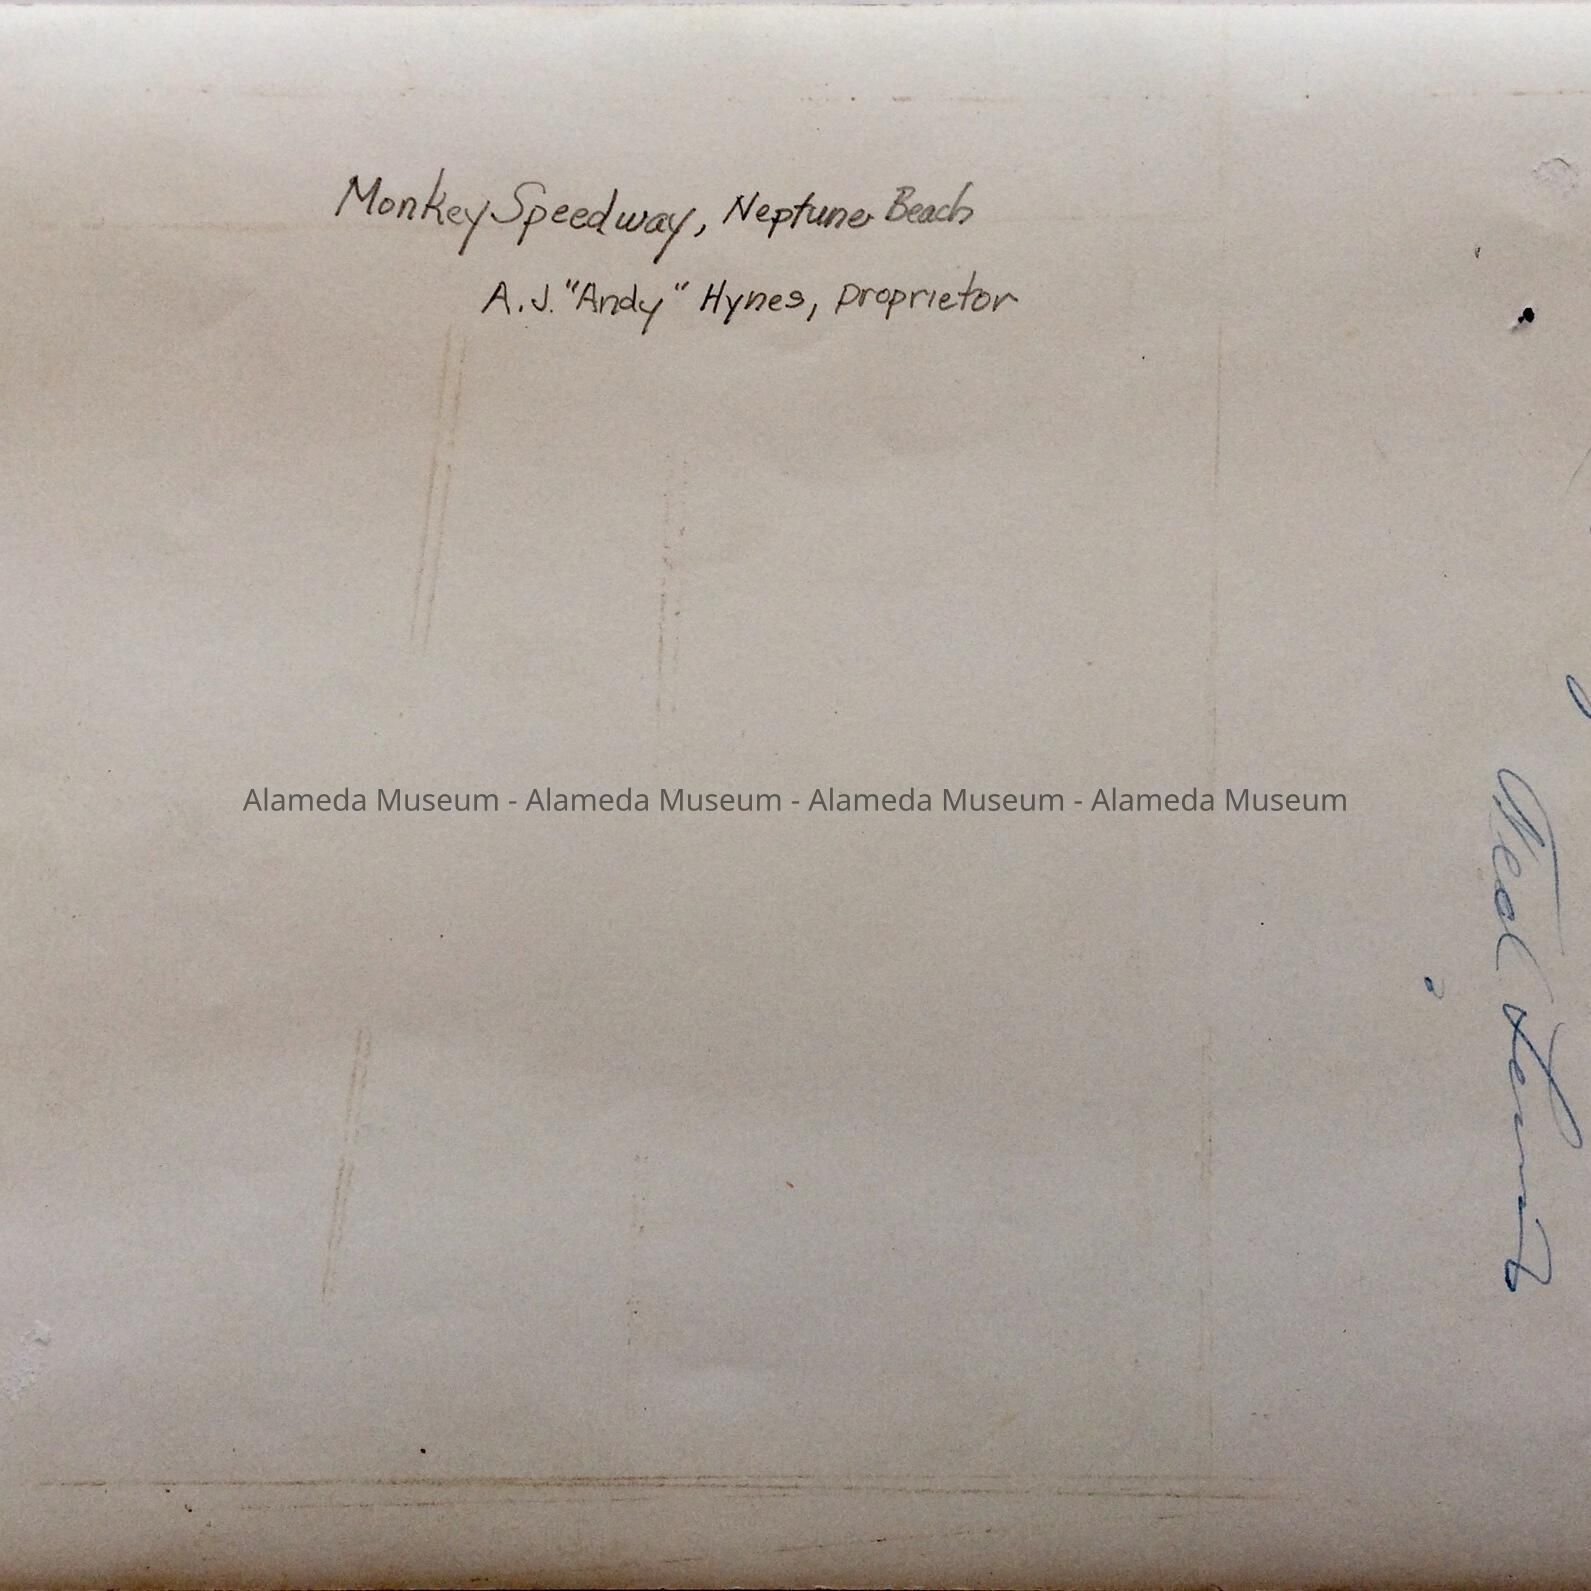 Monkey Speedway, Neptune Beach
A.J. "Andy" Hynes, proprietor
Alameda Museum - Alameda Museum - Alameda Museum - Alameda Museum